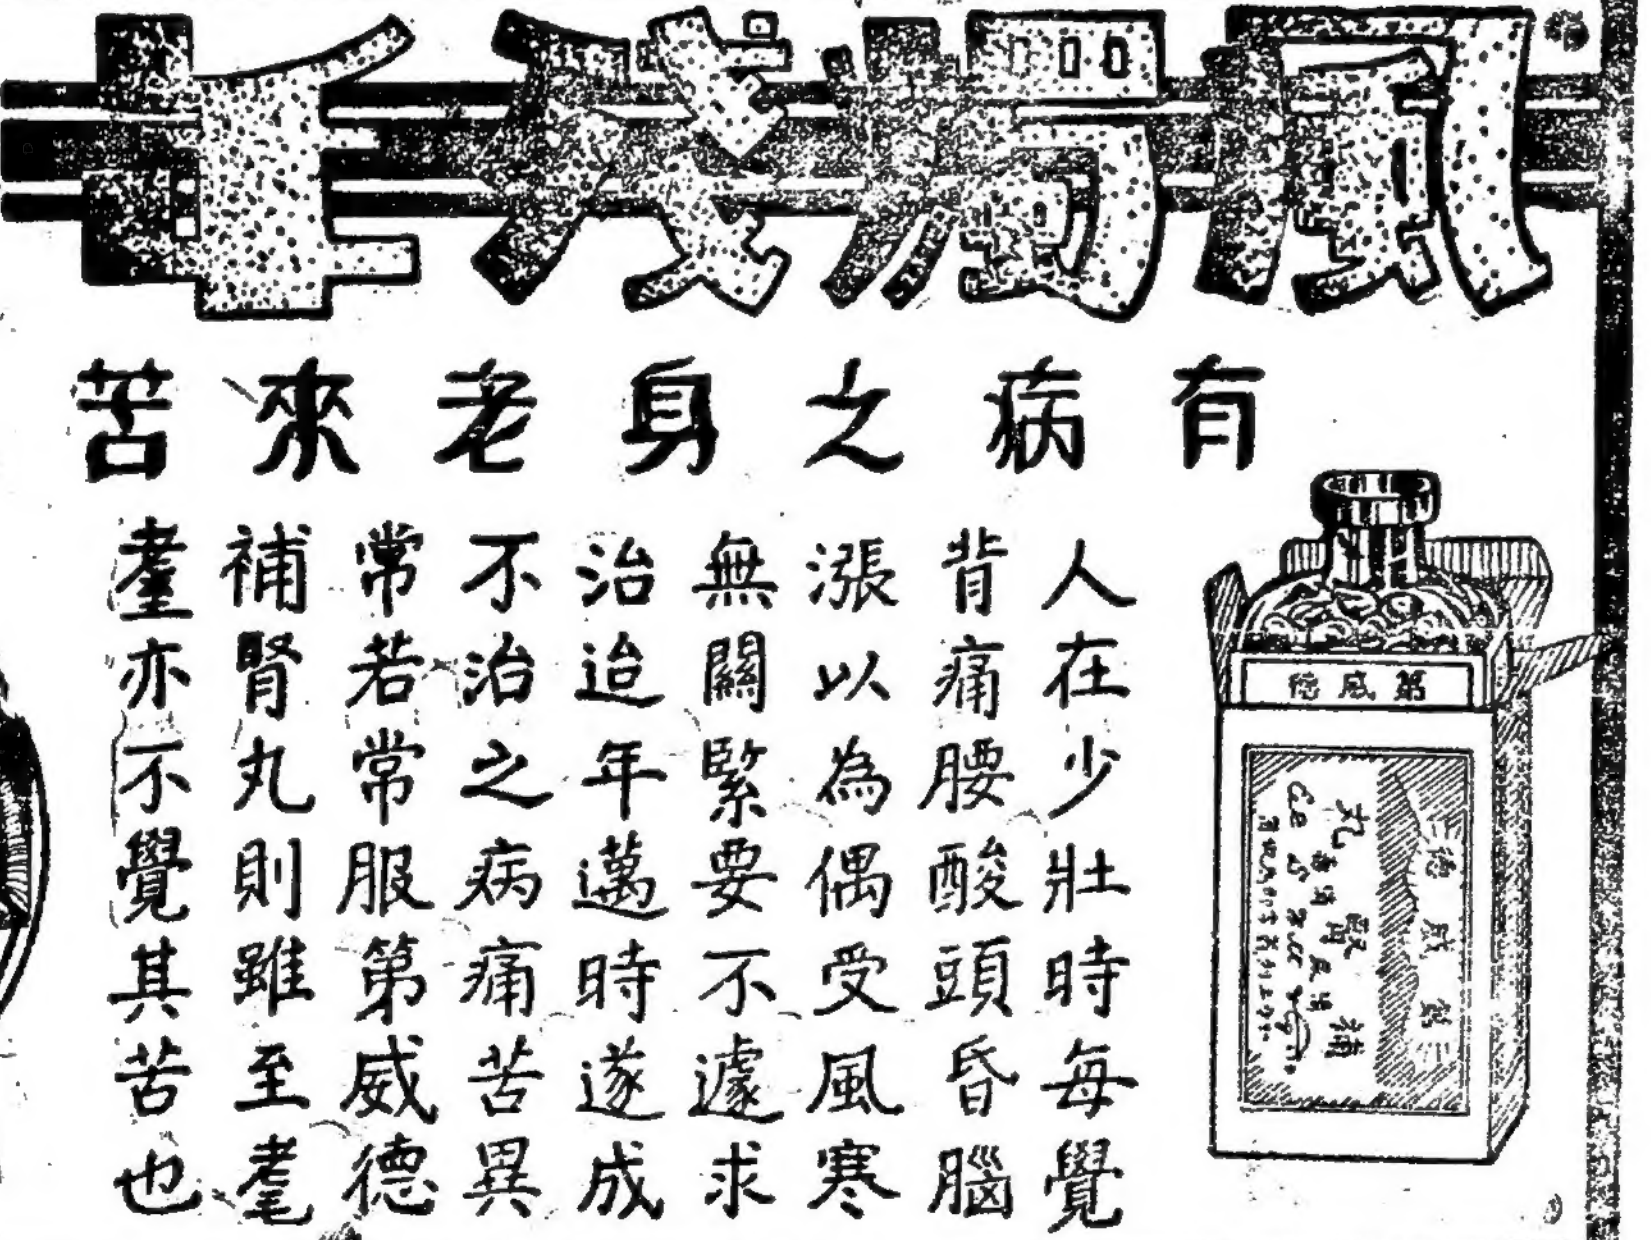 風燭殘年
有病之身老來苦
人在少壯時每覺
背痛腰酸頭昏腦
漲以為偶受風寒
無關緊要不遽求
治迨年邁時遂成
不治之病痛苦異
常若常服第威德
補腎丸則雖至耄
耋亦不覺其苦也
第威德